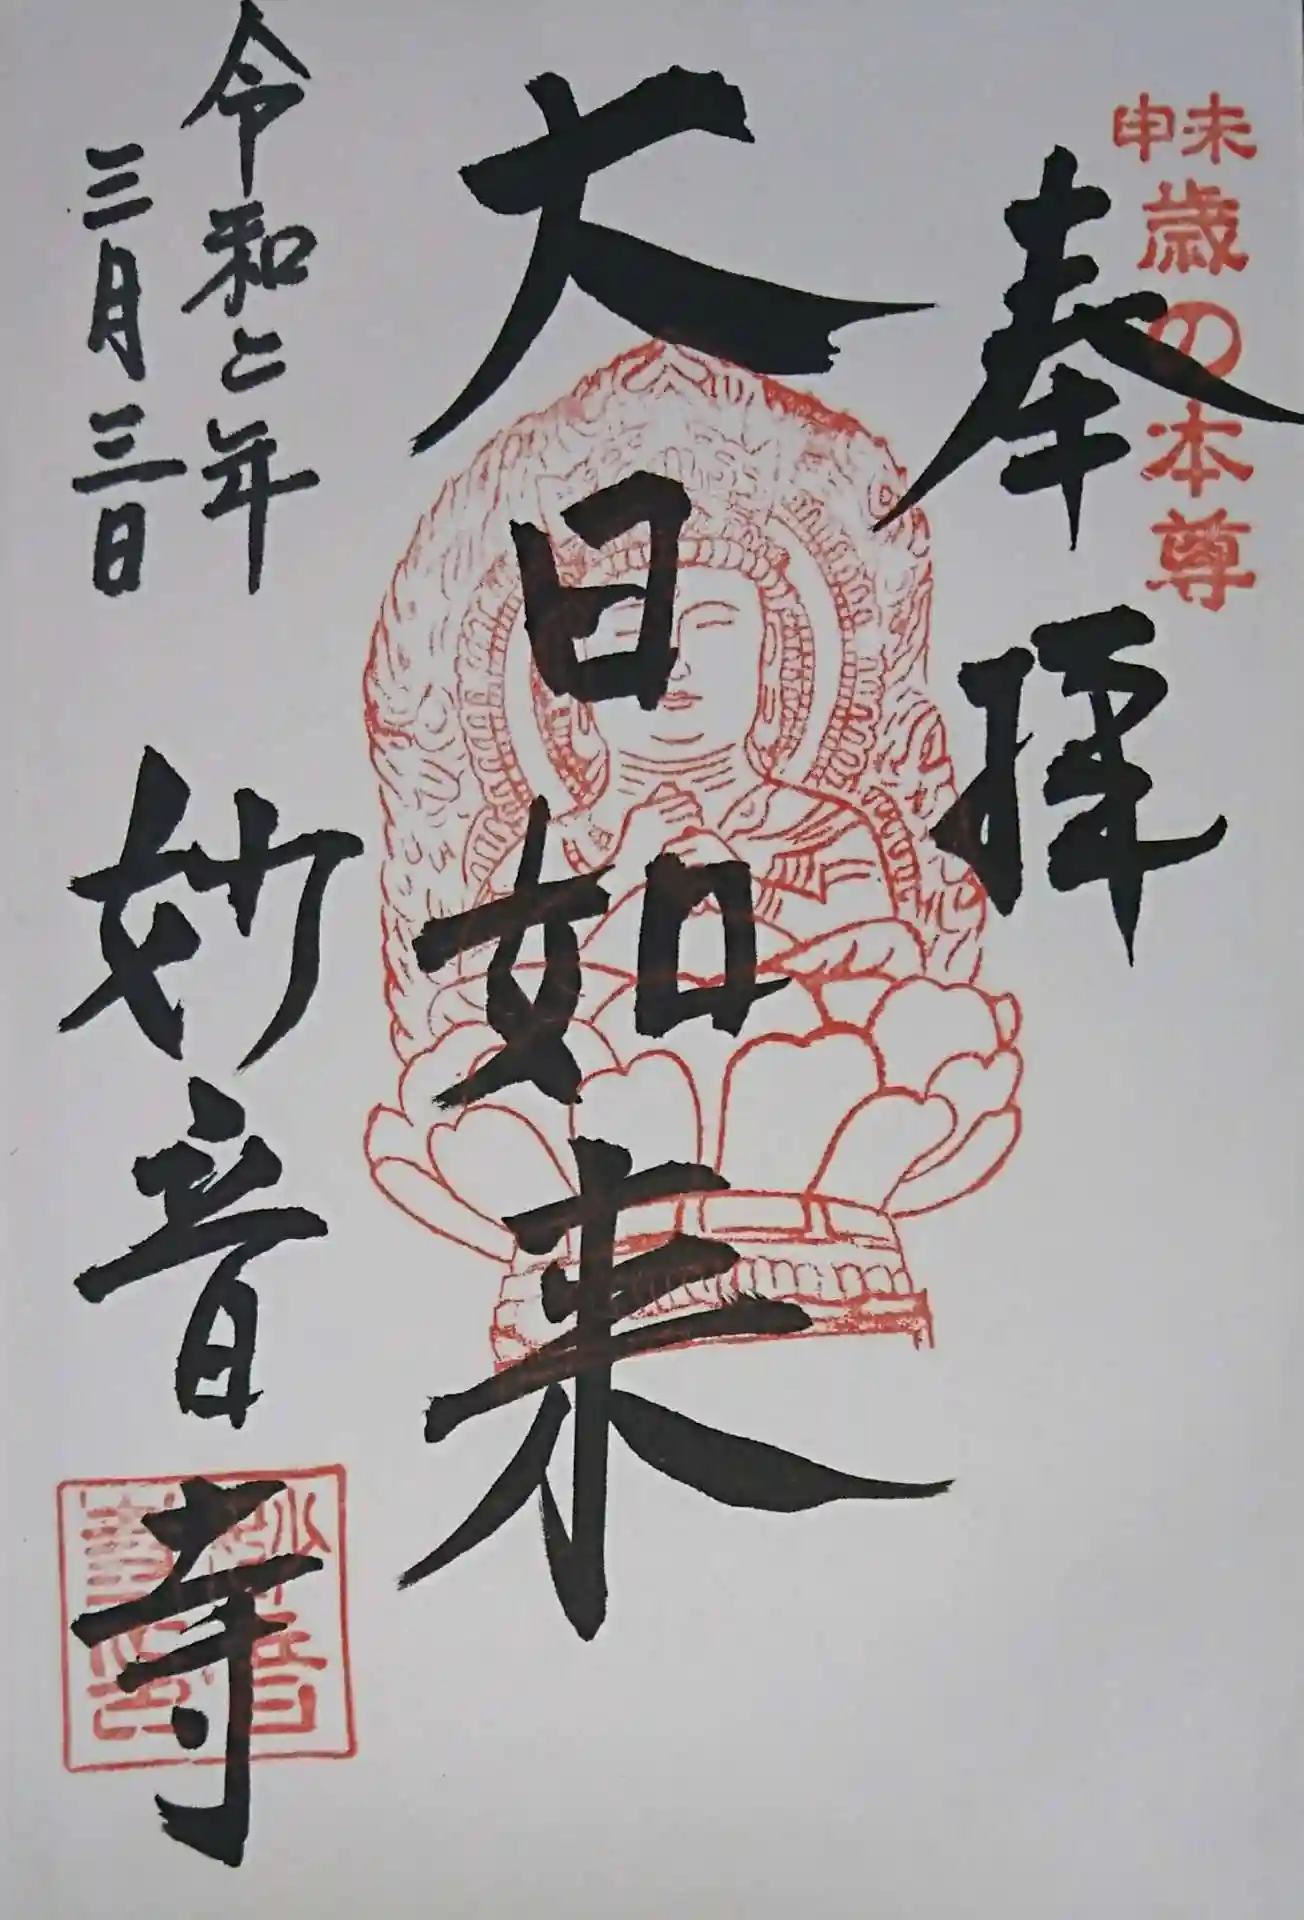 未申歳の本尊
奉拝
大日如来
令和二年
三月三日
妙音寺